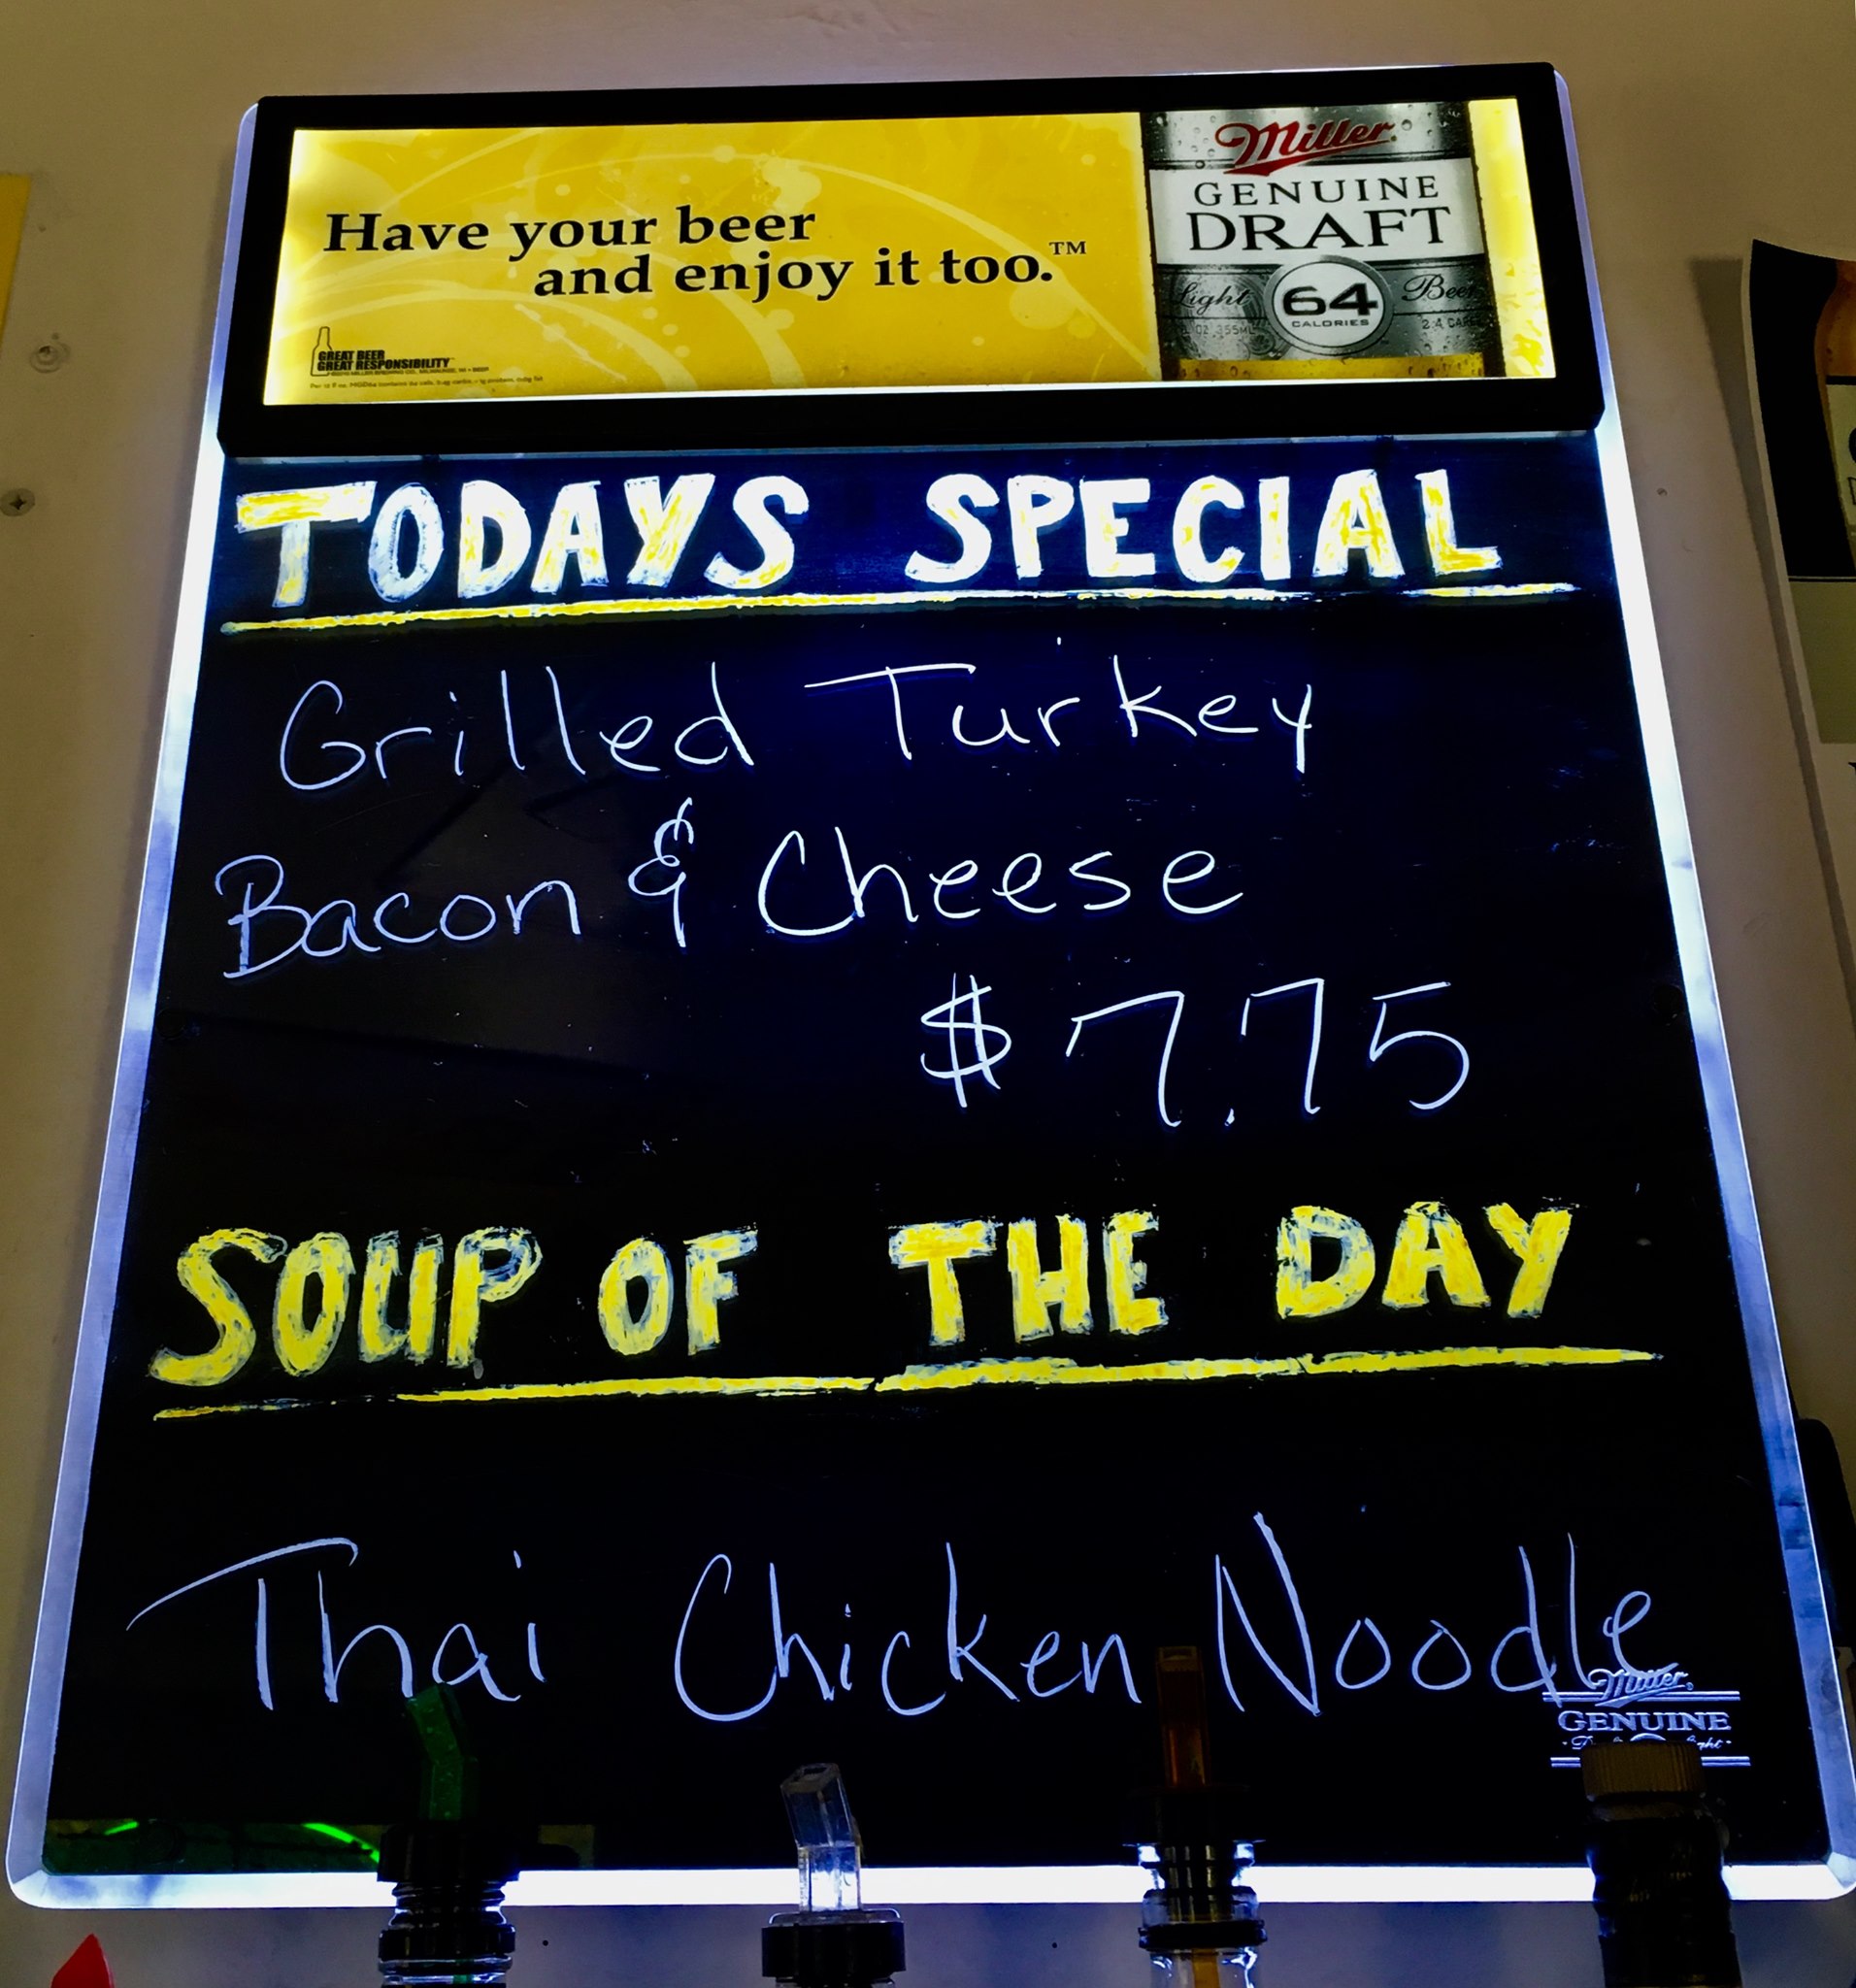 Have your beer
and enjoy it too.™
GREAT BEER
GREAT RESPONSIBILITY
Miller
GENUINE
DRAFT
Light 64 Beer
CALORIES
TODAYS SPECIAL
Grilled Turkey
Bacon & Cheese
$7.75
SOUP OF THE DAY
Thai Chicken Noodle
Miller
GENUINE